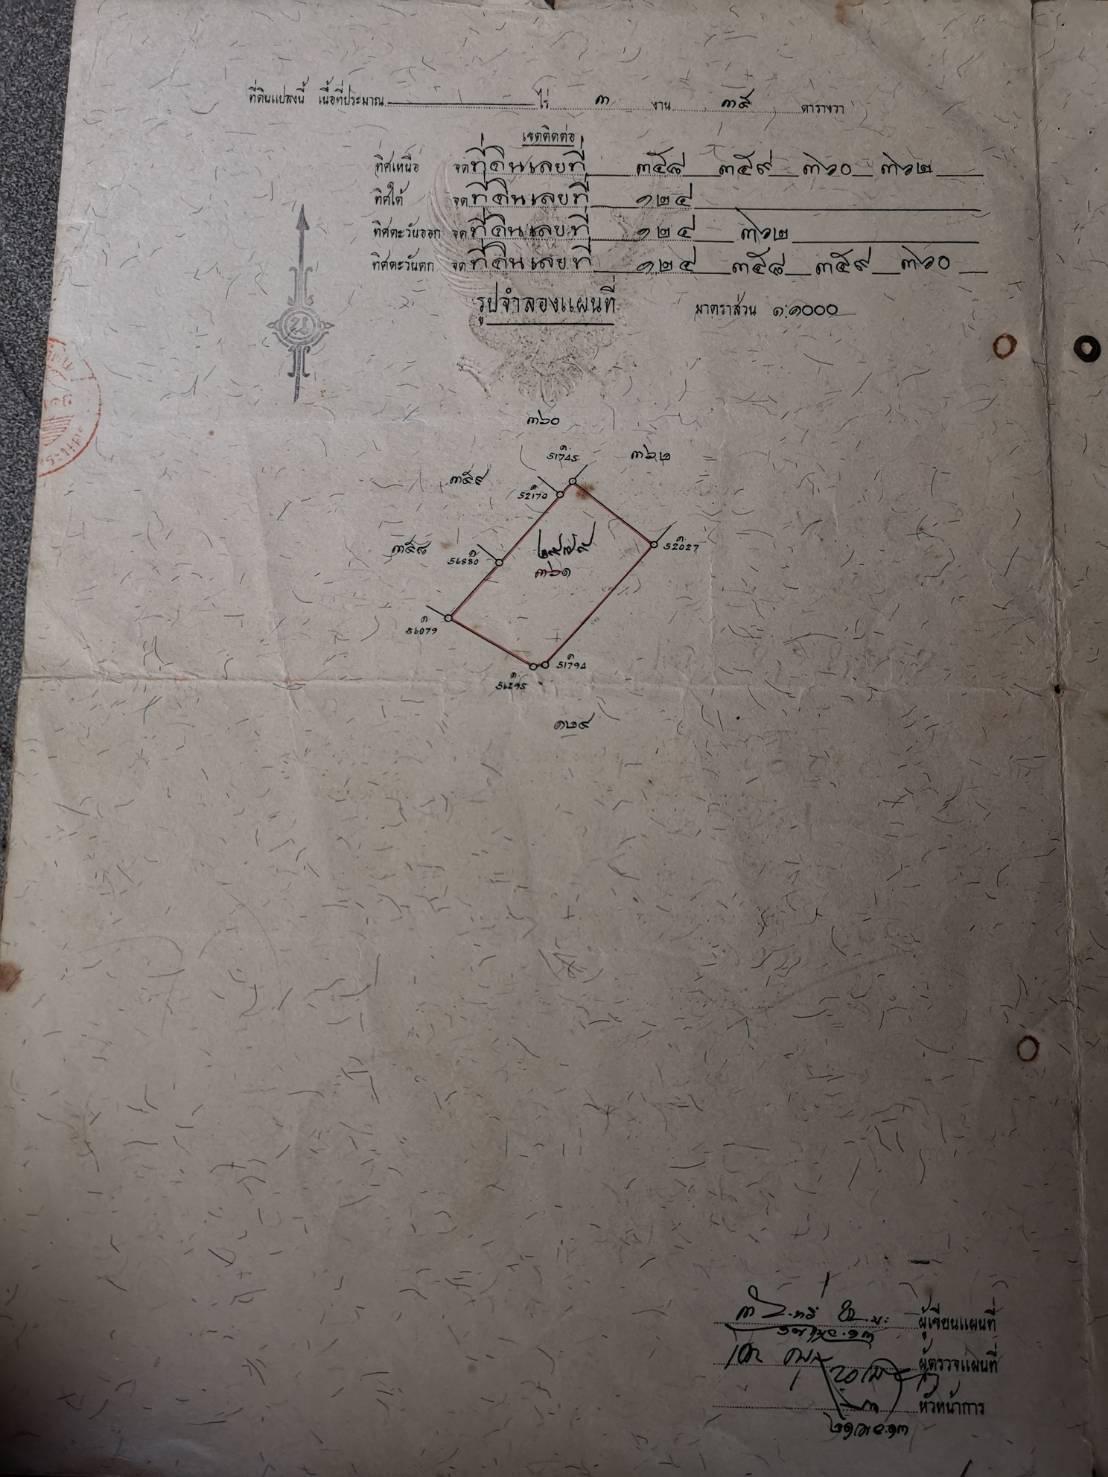 ที่ดินแปลงนี้ เนื้อที่ประมาณ ไร่ ๓ งาน ๓๕ ตารางวา
เขตติดต่อ
ทิศเหนือ จดที่ดินเลขที่ ๓๕๘ ๓๕๙ ๓๖๐ ๓๖๒
ทิศใต้ จดที่ดินเลขที่ ๑๒๔
ทิศตะวันออก จดที่ดินเลขที่ ๑๒๔ ๓๖๒
ทิศตะวันตก จดที่ดินเลขที่ ๑๒๔ ๓๕๘ ๓๕๙ ๓๖๐
รูปจำลองแผนที่ มาตราส่วน ๑:๑๐๐๐
๓๖๐
๓๖๒
ก 51745
๓๕๙
ก 52170
๓๕๘
ก 52027
๓๖๑
ก 56079
ก 51794
ผู้เขียนแผนที่
ผู้ตรวจแผนที่
หัวหน้าการ